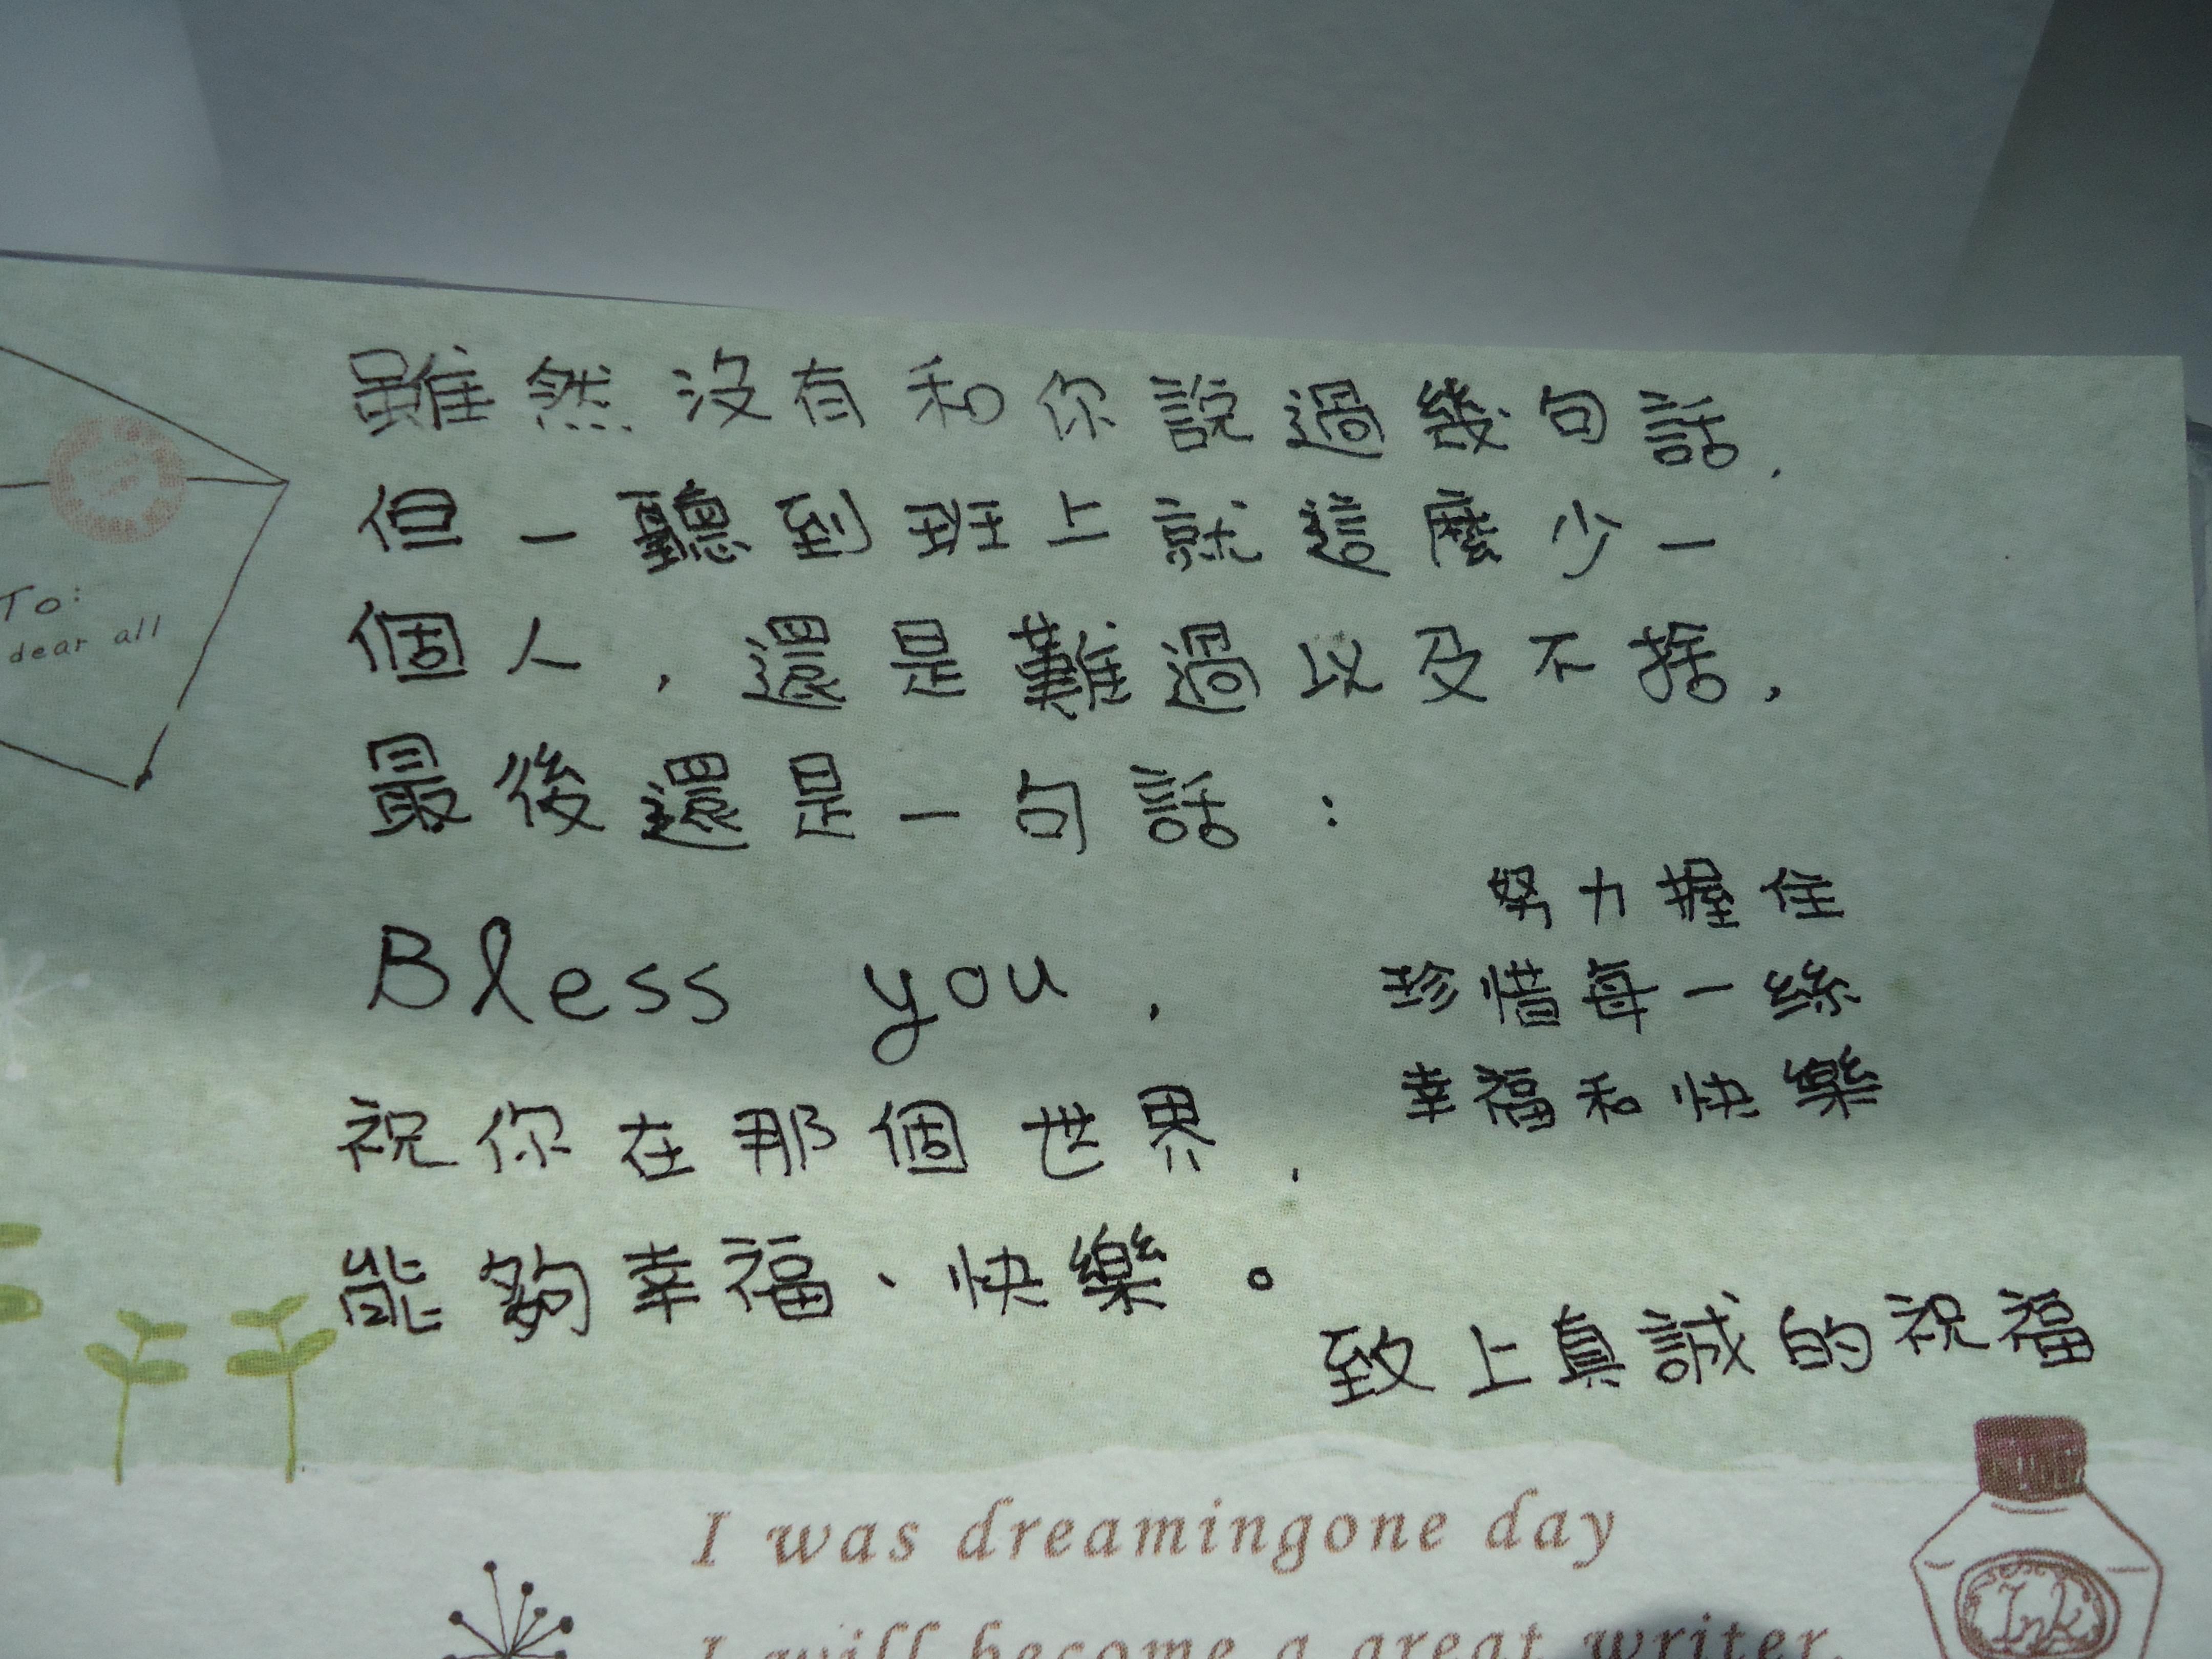 雖然沒有和你說過幾句話,
但一聽到班上就這麼少一
個人,還是難過以及不捨,
最後還是一句話:
Bless you,
祝你在那個世界,
能夠幸福、快樂。
努力握住
珍惜每一絲
幸福和快樂
致上真誠的祝福
To:
dear all
I was dreamingone day
I will become a great writer.
Ink